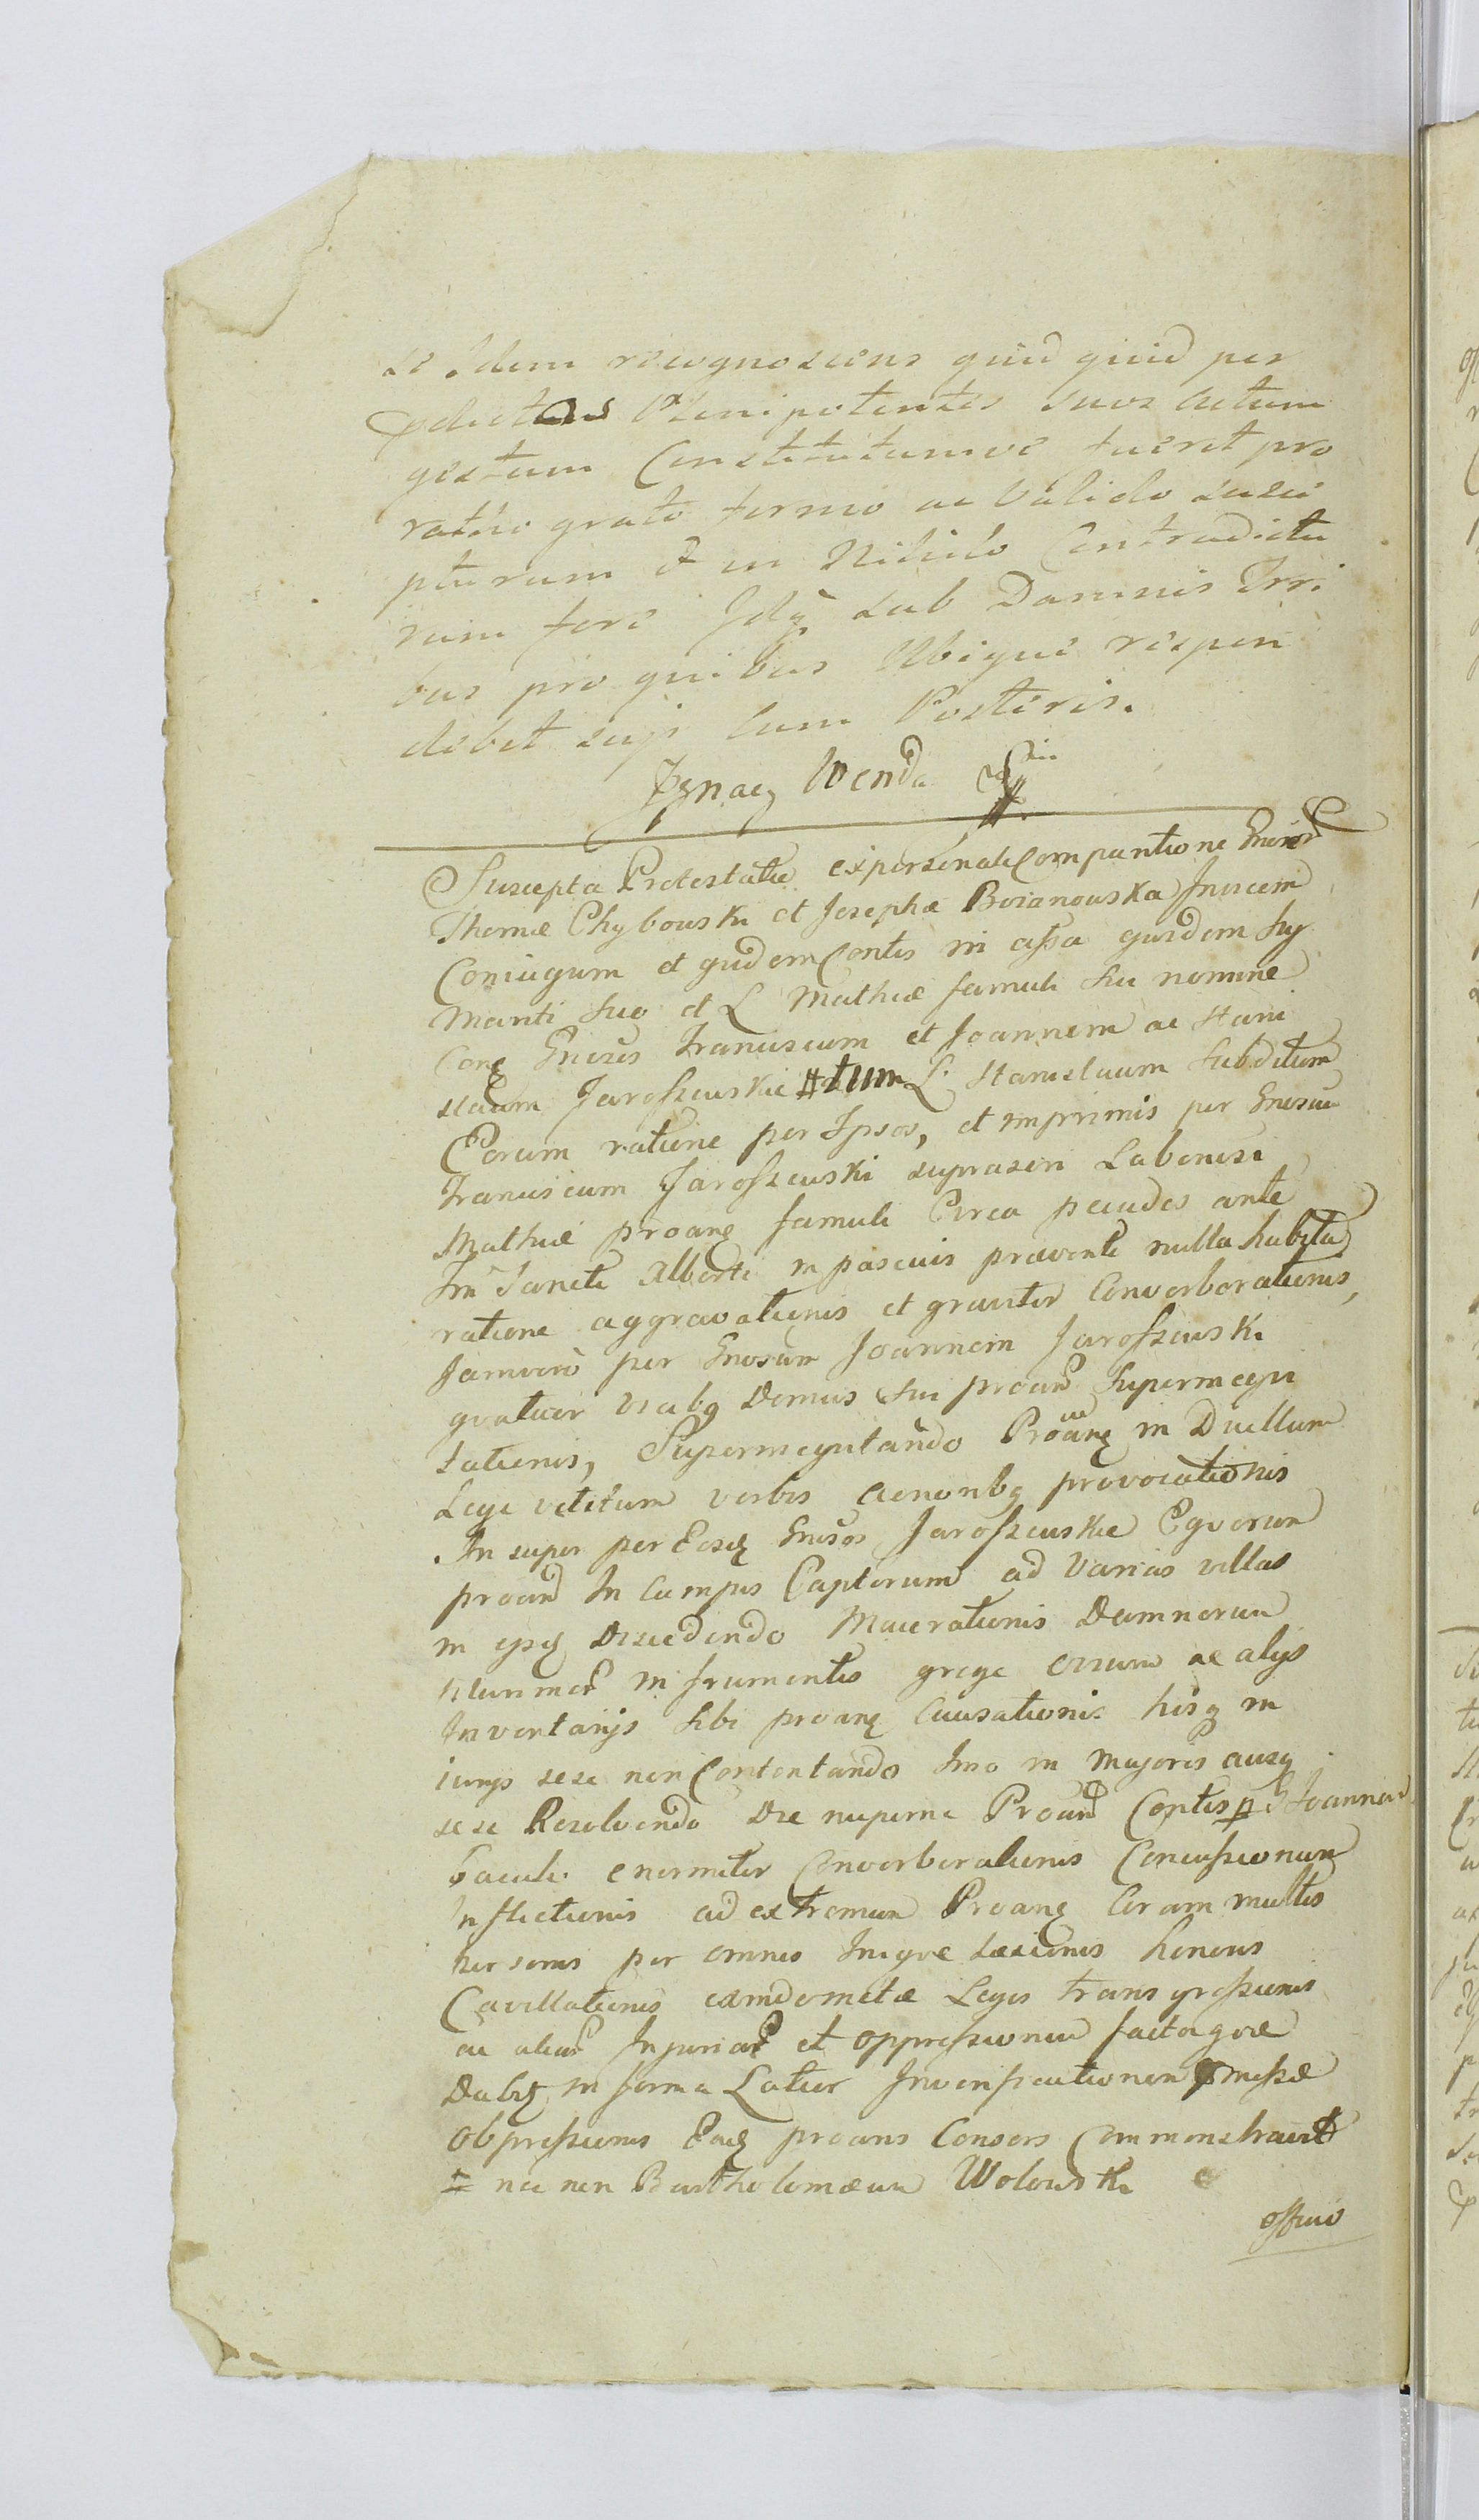 se Idem recognoscens quid quid per
pdictos Plenipotentes suos Actum
gestum Constitutumve fuerit pro
ratho grato firmo ac Valido susce
pturum & in Nihilo Contradictu
rum fore Idq sub Damnis Irri
bus pro quibus Ubique respon
debit suis cum Posteris.
Ignacy Wenda
Suscepta Protestatio ex personali Comparitione Gnosor
Thomæ Chybowski et Josephæ Boianowska Invicem
Coniugum et quidem Contis in assa quidem sui
Mariti suo et L Mathiæ famuli sui nomine
Cong Gnosos Franciscum et Joannem ac Stani
slaum Jaroszewskie # tum L. Stanislaum subditum
Eorum ratione per Ipsos, et imprimis per Gnosum
Franciscum Jaroszewski suprascri Laboriosi
Mathiæ proang famuli Circa pecudes ante
Fm Sancti Alberti in pascuis præventi nulla habita
ratione aggravationis et graviter Converberationis,
Jamvero per Gnosum Joannem Jaroszewski
gvaltier viabq Domus sui proand Supermequi
tationis, Supermequitando Proang in Duellum
Lege vetitum verbis aenonbq provocationis
In super per Eosq Gnosos Jaroszewskie Eqvorum
proand In Campis Captorum ad Varias villas
in ipsq Discedendo Macerationis Damnorum
plurimor in frumentis grege ovium ac alys
Inventarys sibi proang Causationis hisq in
iurys sese non Contentando Imo in Majoris ausq
sese Resolvendo Die nuperne Proand Contis p G Joannem
baculi enormiter Converberationis Concussionum
Inflictionis ad extremum Proang Coram multis
personis per omnes Inique Læsionis honoris
Cavillationis eamdometæ Legis transgressionis
ac aliar Injuriar et oppressionum factaqve
Dabit in forma Latior Inven omissæ
Obpressionis Eaq proans Consors Commonstravit
# nec non Bartholomæum Wolowski
offiuo